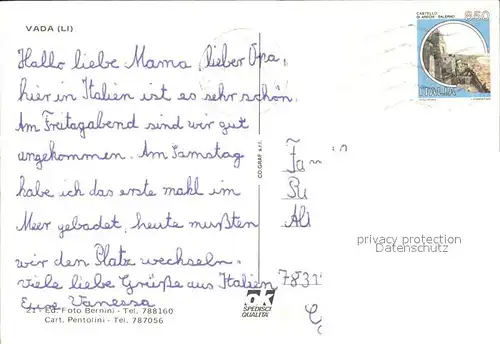 VADA (LI)
Hallo liebe Mama lieber Opa,
hier in Italien ist es sehr schön.
Am Freitagabend sind wir gut
angekommen. Am Samstag
habe ich das erste mahl im
Meer gebadet, heute mußten
wir den Platz wechseln.
viele liebe Grüße aus Italien
Eure Vanessa
21 - Ed. Foto Bernini - Tel. 788160
Cart. Pentolini - Tel. 787056
CO.GRAF s.r.l.
ok
SPEDISCI
QUALITÀ
CASTELLO
DI ARECHI SALERNO
850
ITALIA
Fa
Pu
Al
7831
privacy protection
Datenschutz